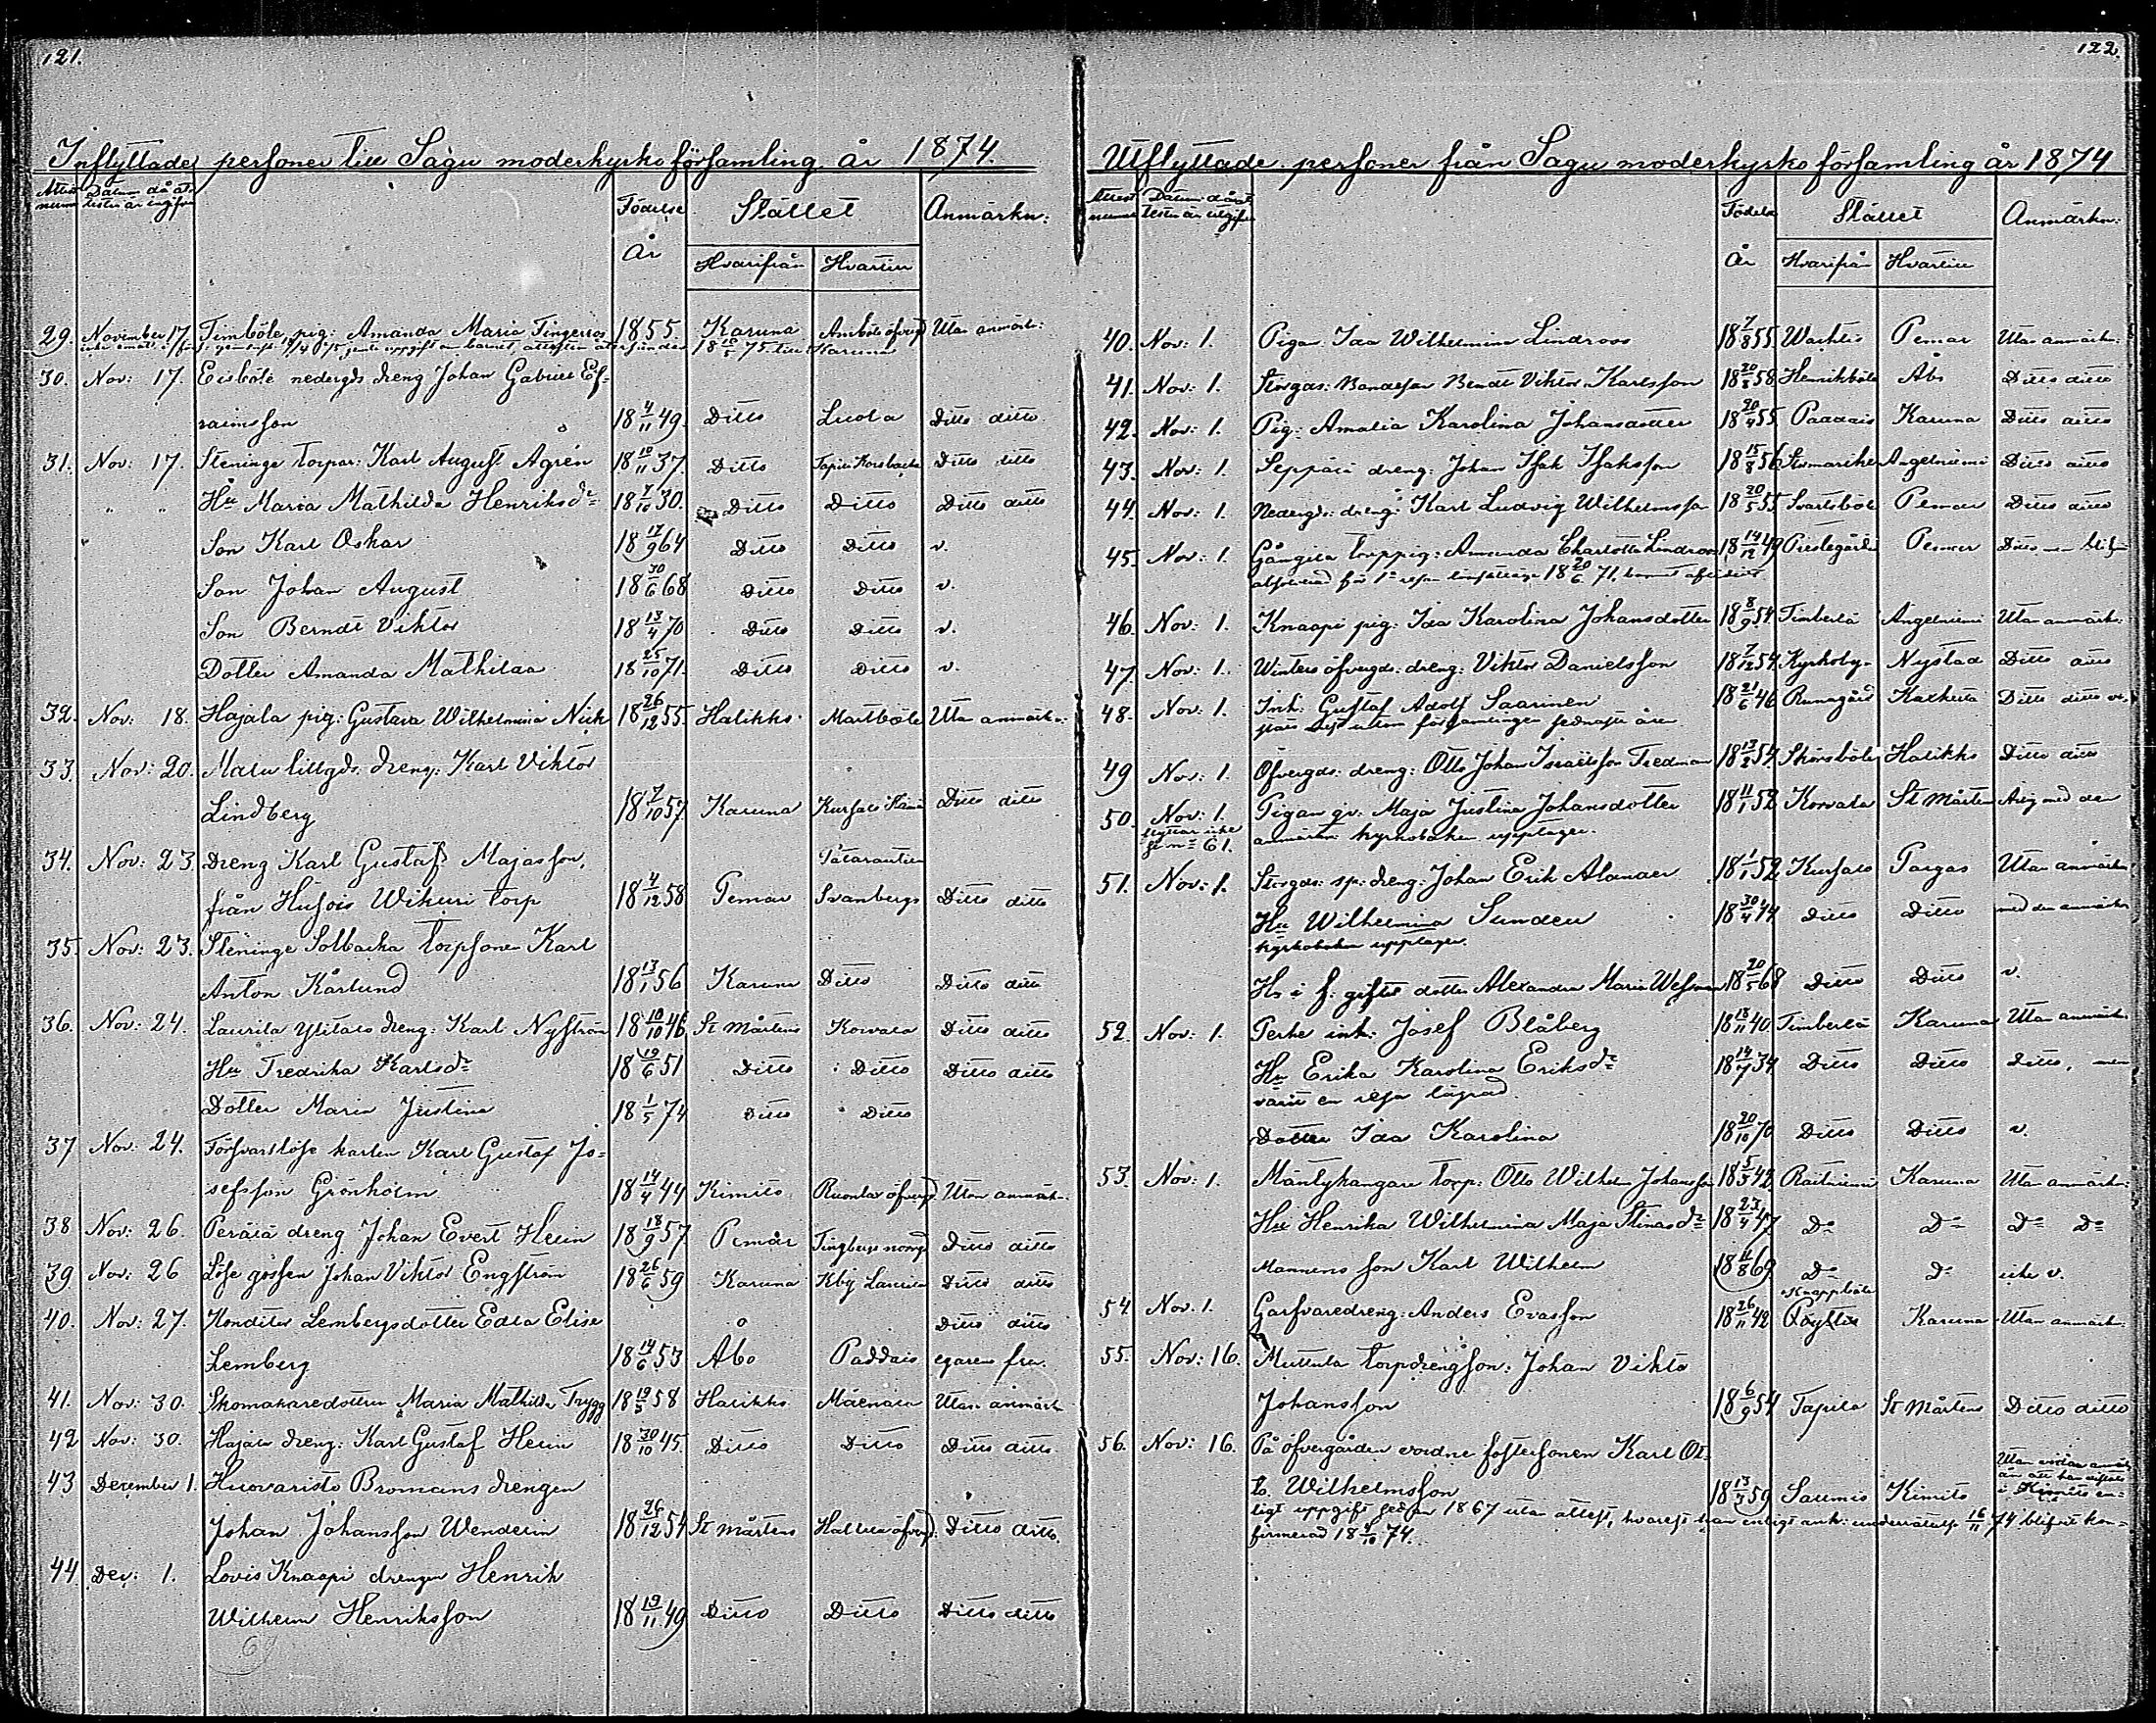 121.
Inflyttade personer till Sagu moderkyrko församling år 1874.
Attest numm Datum då at- testen är ingifven Födelse År Stället Anmärkn:
Hvarifrån Hvartill
29. November 17. Timböle pig: Amanda Maria Fingerroos 1855. Karuna Amböle öfvergd Utan anmärk:
30. Nov: 17. Eisböle nedergds dreng Johan Gabriel Ef-
raimsson 18 4/11 49. Ditto Lucola Ditto ditto
31. Nov: 17. Steninge torpar: Karl August Agrén 18 10/11 37. Ditto Tapila Korsbacka Ditto ditto
" " Hu Maria Mathilda Henriksdr 18 7/10 30. Ditto Ditto Ditto ditto
Son Karl Oskar 18 17/9 64 Ditto Ditto v.
Son Johan August 18 30/6 68 Ditto Ditto v.
Son Berndt Viktor 18 13/4 70 Ditto Ditto v.
Dotter Amanda Mathilda 18 25/10 71. Ditto Ditto v.
32. Nov: 18. Hajala pig: Gustava Wilhelmina Nick 18 26/12 55. Halikko Martböle Utan anmärkn:
33. Nov: 20. Matu lillgds dreng: Karl Viktor
Lindberg 18 7/10 57 Karuna Kursals Ditto ditto
34. Nov: 23. Dreng Karl Gustaf Majasson,
från Husois Wikuri torp 18 4/12 58 Pemar Svanbergs Ditto ditto
35. Nov: 23. Steninge Solbacka torpsonen Karl
Anton Kårlund 18 13/1 56 Karuna Ditto Ditto ditto
36. Nov: 24. Laurila Ylitalo dreng: Karl Nyström 18 10/10 46 St Mårtens Korvala Ditto ditto
Hu Fredrika Karlsdr 18 19/6 51 Ditto Ditto Ditto ditto
Dotter Maria Justina 18 1/5 74 Ditto Ditto
37 Nov: 24. Försvarslöse karlen Karl Gustaf Jo-
sefsson Grönholm 18 14/4 44 Kimito Ruonla öfvergd. Utan anmärk:
38 Nov: 26. Peräiä dreng Johan Evert Helin 18 18/9 57 Pemar Ditto ditto
39 Nov: 26 Löse gossen Johan Viktor Engström 18 26/6 59 Karuna Kby Laurila Ditto ditto
40. Nov: 27. Konditor Lembergsdotter Edla Elise Ditto ditto
Lemberg 18 14/6 53 Åbo Paddais egarens fru.
41. Nov: 30. Skomakaredottern Maria Mathilda Trygg 18 19/3 58 Halikko Mäenala Utan anmärk
42 Nov: 30. Hajala dreng: Karl Gustaf Helin 18 30/10 45. Ditto Ditto Ditto ditto
43 December 1. Huovaristo Bromans drengen
Johan Johansson Wendelin 18 26/12 54 St Mårtens Haltula öfvergd: Ditto ditto.
44 Dec: 1. Lovis Knaapi drengen Henrik
Wilhelm Henriksson 18 19/11 49 Ditto Ditto Ditto ditto
69
122.
Utflyttade personer från Sagu moderkyrko församling år 1874
Attest numm Datum då at- testen är utgifven Födelse År Stället Anmärkn:
Hvarifrån Hvartill
40. Nov: 1. Pigan Ida Wilhelmina Lindroos 18 7/8 55. Wachtis Pemar Utan anmärkn:
41. Nov: 1. Storgds: Bondeson Berndt Viktor Karlsson 18 20/3 58 Henrikböle Åbo Ditto ditto
42. Nov: 1. Pig: Amalia Karolina Johansdotter 18 20/4 55 Paddais Karuna Ditto ditto
43. Nov: 1. Seppälä dreng: Johan Isak Isaksson 18 15/8 56 Stormarike Angelniemi Ditto ditto
44. Nov: 1. Nedergds: dreng: Karl Ludvig Wilhelmsson 18 20/5 55 Svartsböle Pemar Ditto ditto
45. Nov: 1. Gångila torppig: Amanda Charlotta Lindroos 18 14/12 49 Prestegården Pemar Ditto
46. Nov: 1. Knaapi pig: Ida Karolina Johansdotter 18 8/9 54 Timberlä Angelniemi Utan anmärkn:
47 Nov: 1. Winters öfvergds: dreng: Viktor Danielsson 18 7/12 54. Kyrkoby- Nystad Ditto ditto
48. Nov: 1. Inh: Gustaf Adolf Saarinen 18 21/6 46 Runagård Ditto ditto
49 Nov: 1. Öfvergds: dreng: Otto Johan Israelsson Fredman 18 13/2 54 Skörsböle Halikko Ditto ditto
50. Nov: 1. Pigan gv. Maja Justina Johansdotter 18 11/1 52 Korvala St Mårtens Arig med den
flyttar icke se no 61. anmärkn: kyrkoboken upptager.
51. Nov: 1. Storgds: sp: dreng: Johan Erik Alander 18 1/1 52 Kursals Pargas Utan anmärkn
Hu Wilhelmina Sundell 18 30/4 44 Ditto Ditto med den anmärkn
kyrkoboken upptager.
Hs i f: giftet dotter Alexandra Maria Wesman 18 20/5 68 Ditto Ditto v.
52. Nov: 1. Perhe inh: Josef Blåberg 18 18/11 40. Timberlä Karuna Utan anmärkn
Hu Erika Karolina Eriksdr 18 14/7 34 Ditto Ditto Ditto, men
varit en resa lägrad.
Dotter Ida Karolina 18 20/10 70 Ditto Ditto v.
53. Nov: 1. Mäntykangare torp: Otto Wilhelm Johansson 18 5/3 42. Raitniemi Karuna Utan anmärkn:
Hu Henrika Wilhelmina Maja Stinasdr 18 23/4 47 Do Do Do Do
Mannens son Karl Wilhelm 18 11/8 69 Do Do icke v.
54. Nov. 1. Garfvaredreng: Anders Evasson 18 26/11 42 Knappböle Karuna Utan anmärkn:
55. Nov: 16. Muttula torpdrengson: Johan Viktor
Johansson 18 6/9 54 Tapila St Mårtens Ditto ditto
56. Nov: 16. På öfvergården vordne fostersonen Karl Ot-
to Wilhelmsson 18 13/3 59 Saumis Kimito Utan vidare anmärk än att han vistats i Kimito en-
ligt uppgift sedan 1867 utan attest, hvarest han enligt ank: underrättelse 16/11 74 blifvit kon-
firmerad 18 4/10 74.